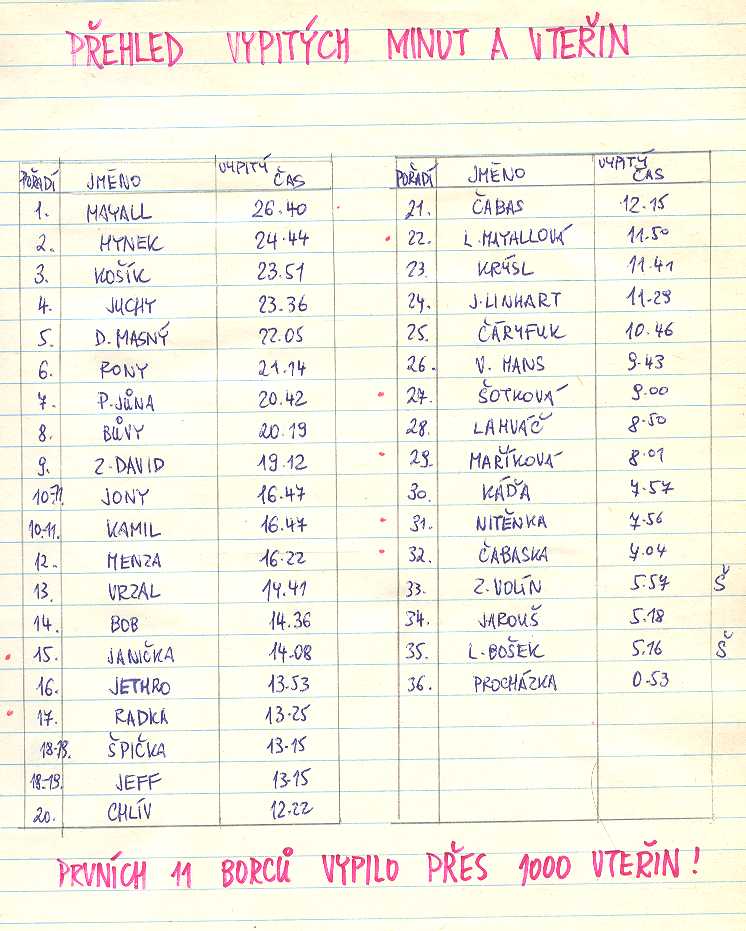 PŘEHLED VYPITÝCH MINUT A VTEŘIN
POŘADÍ JMÉNO VYPITÝ ČAS
1. MAYALL 26.40
2. HYNEK 24.44
3. KOŠÍK 23.51
4. JUCHY 23.36
5. D. MASNÝ 22.05
6. RONY 21.14
7. P. JŮNA 20.42
8. BŮVY 20.19
9. Z. DAVID 19.12
10-11. JONY 16.47
10-11. KAMIL 16.47
12. MENZA 16.22
13. VRZAL 14.41
14. BOB 14.36
15. JANIČKA 14.08
16. JETHRO 13.53
17. RADKA 13.25
18-19. ŠPIČKA 13.15
18-19. JEFF 13.15
20. CHLÍV 12.22
POŘADÍ JMÉNO VYPITÝ ČAS
21. ČABAS 12.15
22. L. MAYALLOVÁ 11.50
23. KRÝSL 11.41
24. J. LINHART 11.29
25. ČÁRYFUK 10.46
26. V. MANS 9.43
27. ŠOTKOVÁ 9.00
28. LAHVÁČ 8.50
29. MAŘÍKOVÁ 8.01
30. KÁĎA 7.57
31. NITĚNKA 7.56
32. ČABASKA 7.04
33. Z. VOLÍN 5.57 Š
34. JAROUŠ 5.18
35. L. BOŠEK 5.16 Š
36. PROCHÁZKA 0.53
PRVNÍCH 11 BORCŮ VYPILO PŘES 1000 VTEŘIN!